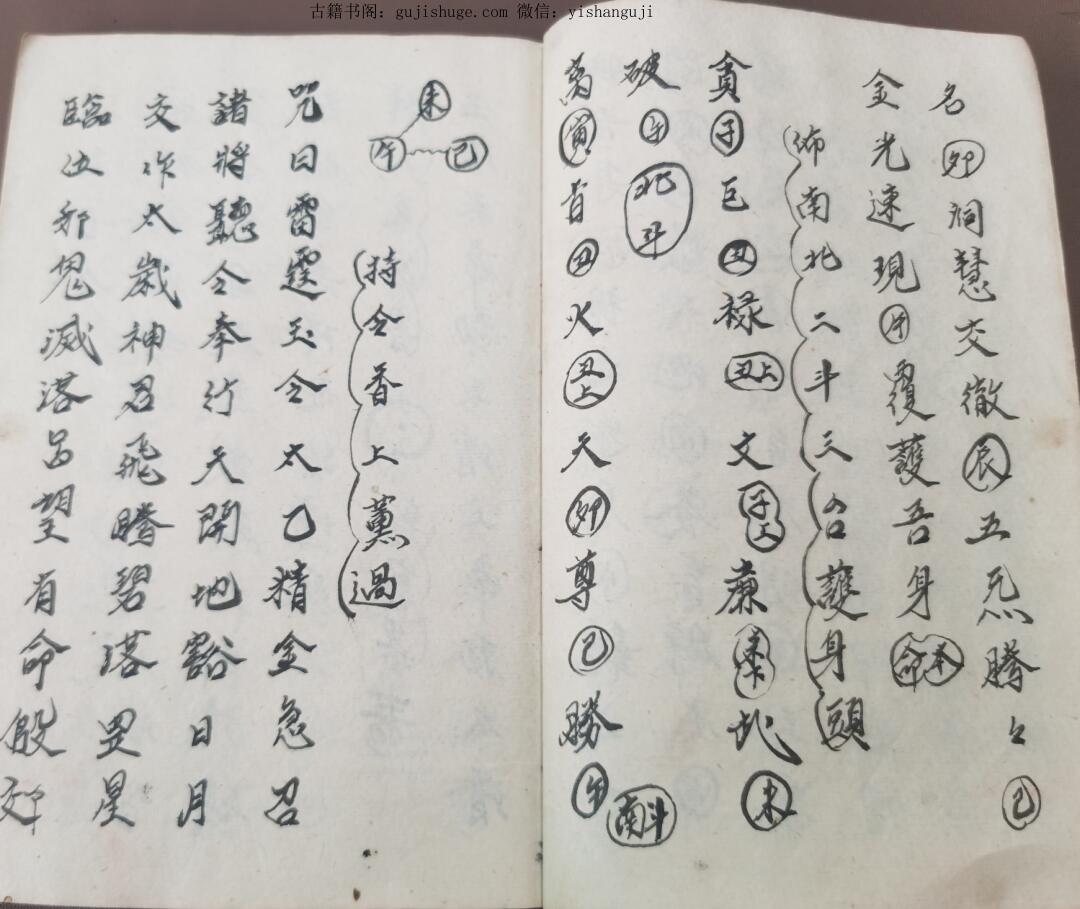 古籍书阁：gujishuge.com 微信：yishanguji
名卯洞慧交徹辰五炁騰々巳
金光速現午覆護吾身本命
佈南北二斗三台護身頭
貪子巨丑祿丑上文子上廉未
破午北斗
寅丑火丑上天卯尊巳勝午南斗
未
午巳
持令香上薰過
咒曰雷霆玉令太乙精金急召
諸將聽令奉行天開地豁日月
交作太歲神君飛騰碧落罡星
臨邪鬼滅落呂望有命殷交